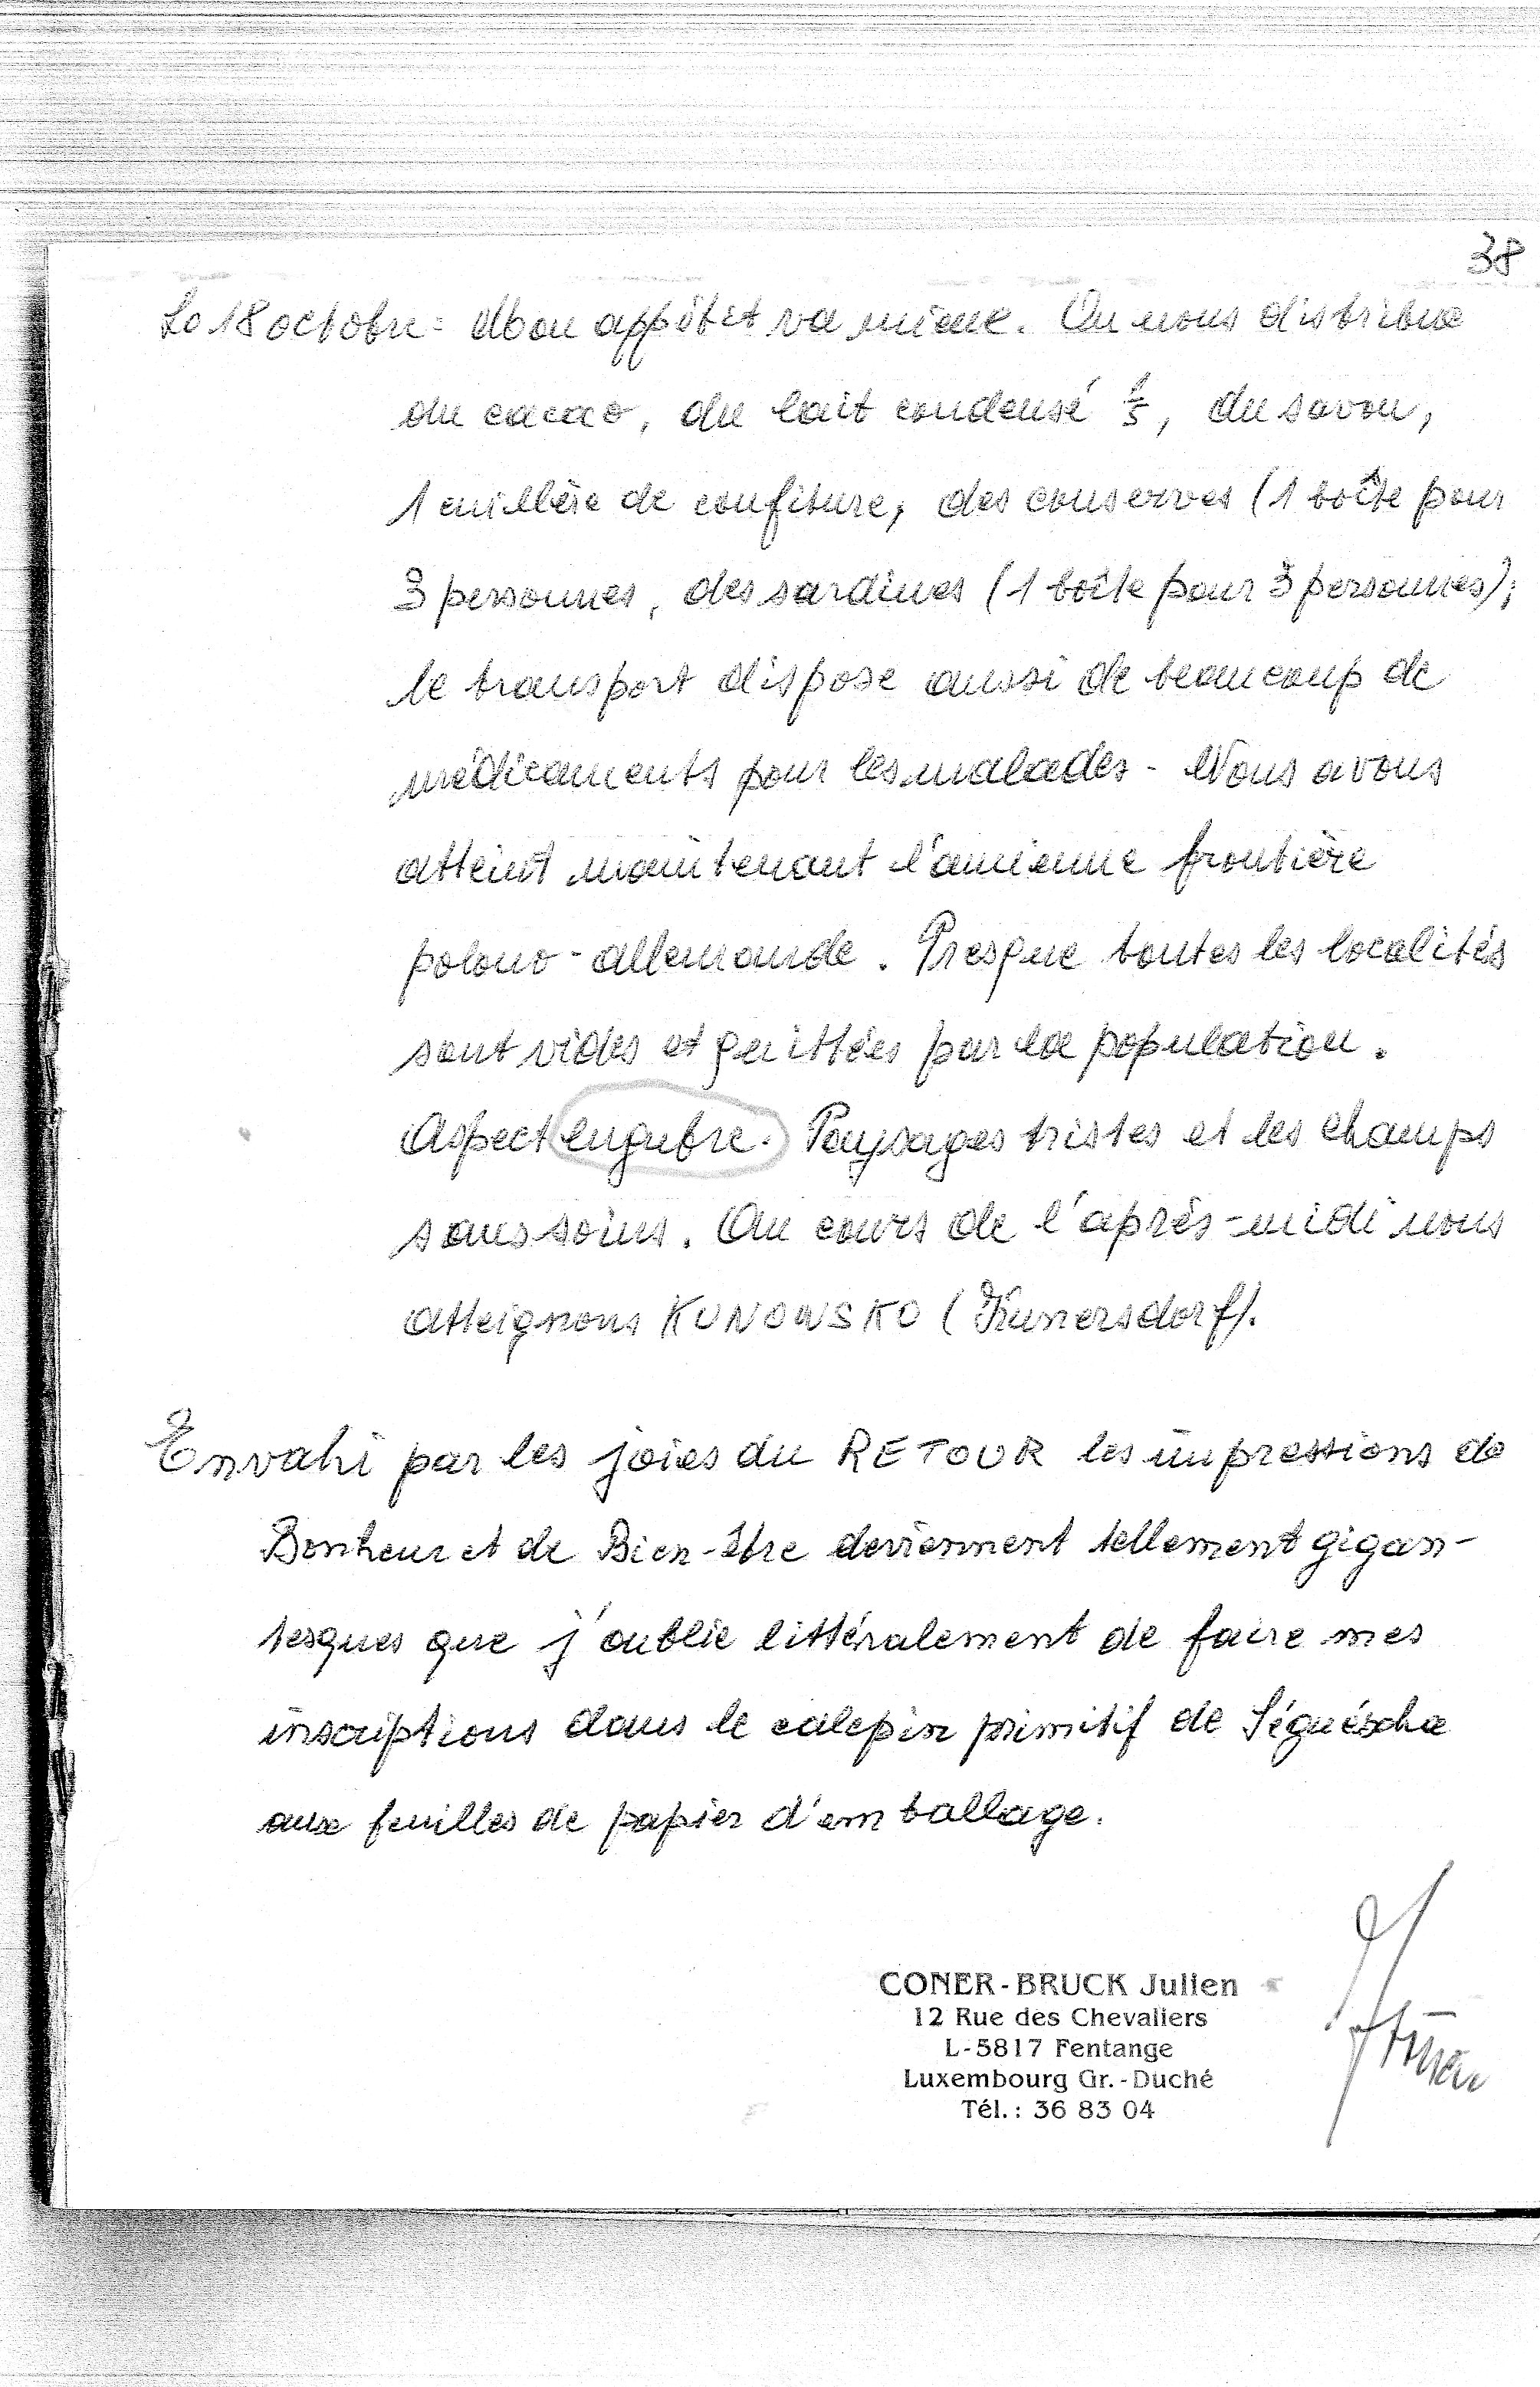 38
Le 18 octobre: Mon appétit va mieux. On nous distribue
du cacao, du lait condensé 1/5, du savon,
1 cuillère de confiture, des conserves (1 boîte pour
3 personnes, des sardines (1 boîte pour 3 personnes);
le transport dispose aussi de beaucoup de
médicaments pour les malades - Nous avons
atteint maintenant l'ancienne frontière
polono-allemande. Presque toutes les localités
sont vides et quittées par la population.
Aspect lugubre. Paysages tristes et les champs
sans soins. Au cours de l'après-midi nous
atteignons KUNOWSKO (Kunersdorf).
Envahi par les joies du RETOUR les impressions de
Bonheur et de Bien-être deviennent tellement gigan-
tesques que j'oublie littéralement de faire mes
inscriptions dans le calepin primitif de Séguéscha
aux feuilles de papier d'emballage.
CONER-BRUCK Julien
12 Rue des Chevaliers
L-5817 Fentange
Luxembourg Gr.-Duché
Tél.: 36 83 04